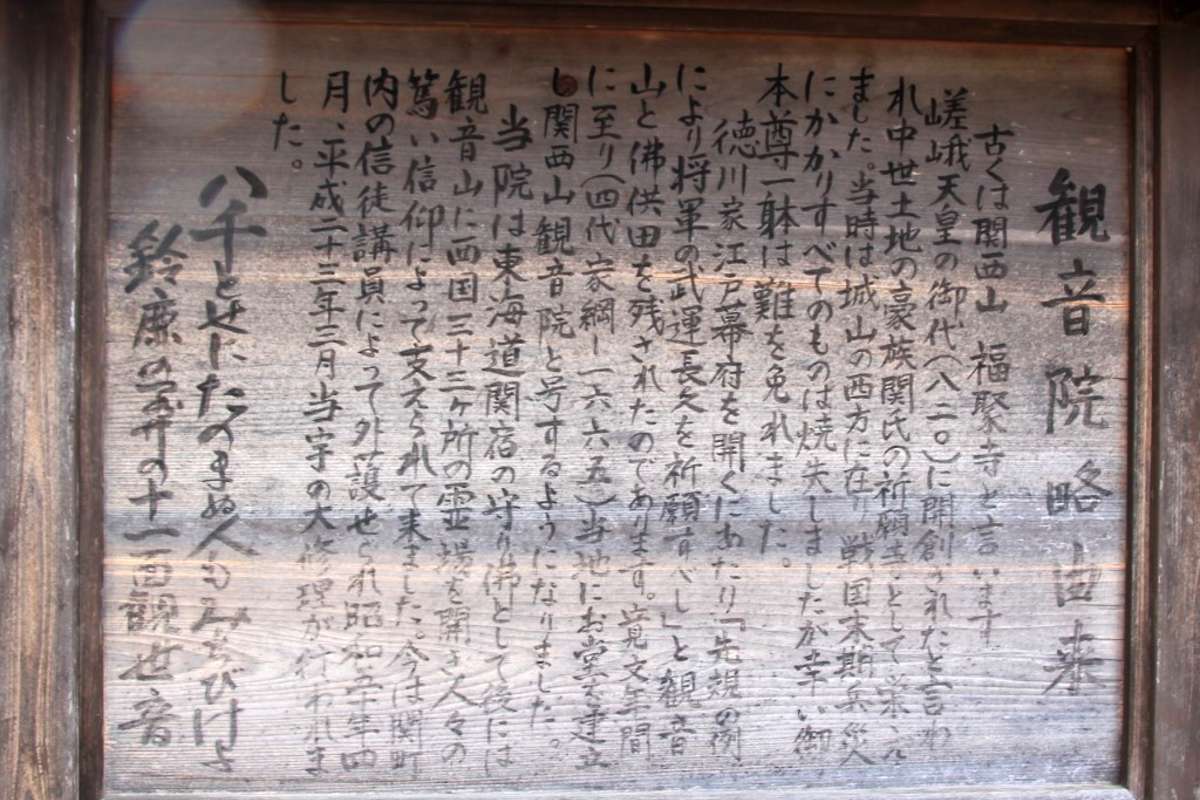 観音院略由来
古くは関西山 福聚寺と言います
嵯峨天皇の御代(八二〇)に開創されたと言わ
れ中世土地の豪族関氏の祈願寺として栄え
ました。当時は城山の西方に在り 戦国末期兵災
にかかりすべてのものは焼失しましたが幸い御
本尊一躰は難を免れました。
徳川家江戸幕府を開くにあたり「先規の例
により将軍の武運長久を祈願すべし」と観音
山と佛供田を残されたのであります。寛文年間
に至り(四代家綱ー一六六五)当地にお堂を建立
し関西山観音院と号するようになりました。
当院は東海道関宿の守り佛として後には
観音山に西国三十三ヶ所の霊場を開き人々の
篤い信仰によって支えられて来ました。今は関町
内の信徒講員によって外護せられ昭和五十年四
月、平成二十三年三月当宇の大修理が行われま
した。
八千とせにたのまぬ人もみちびけよ
鈴鹿の関の十一面観世音